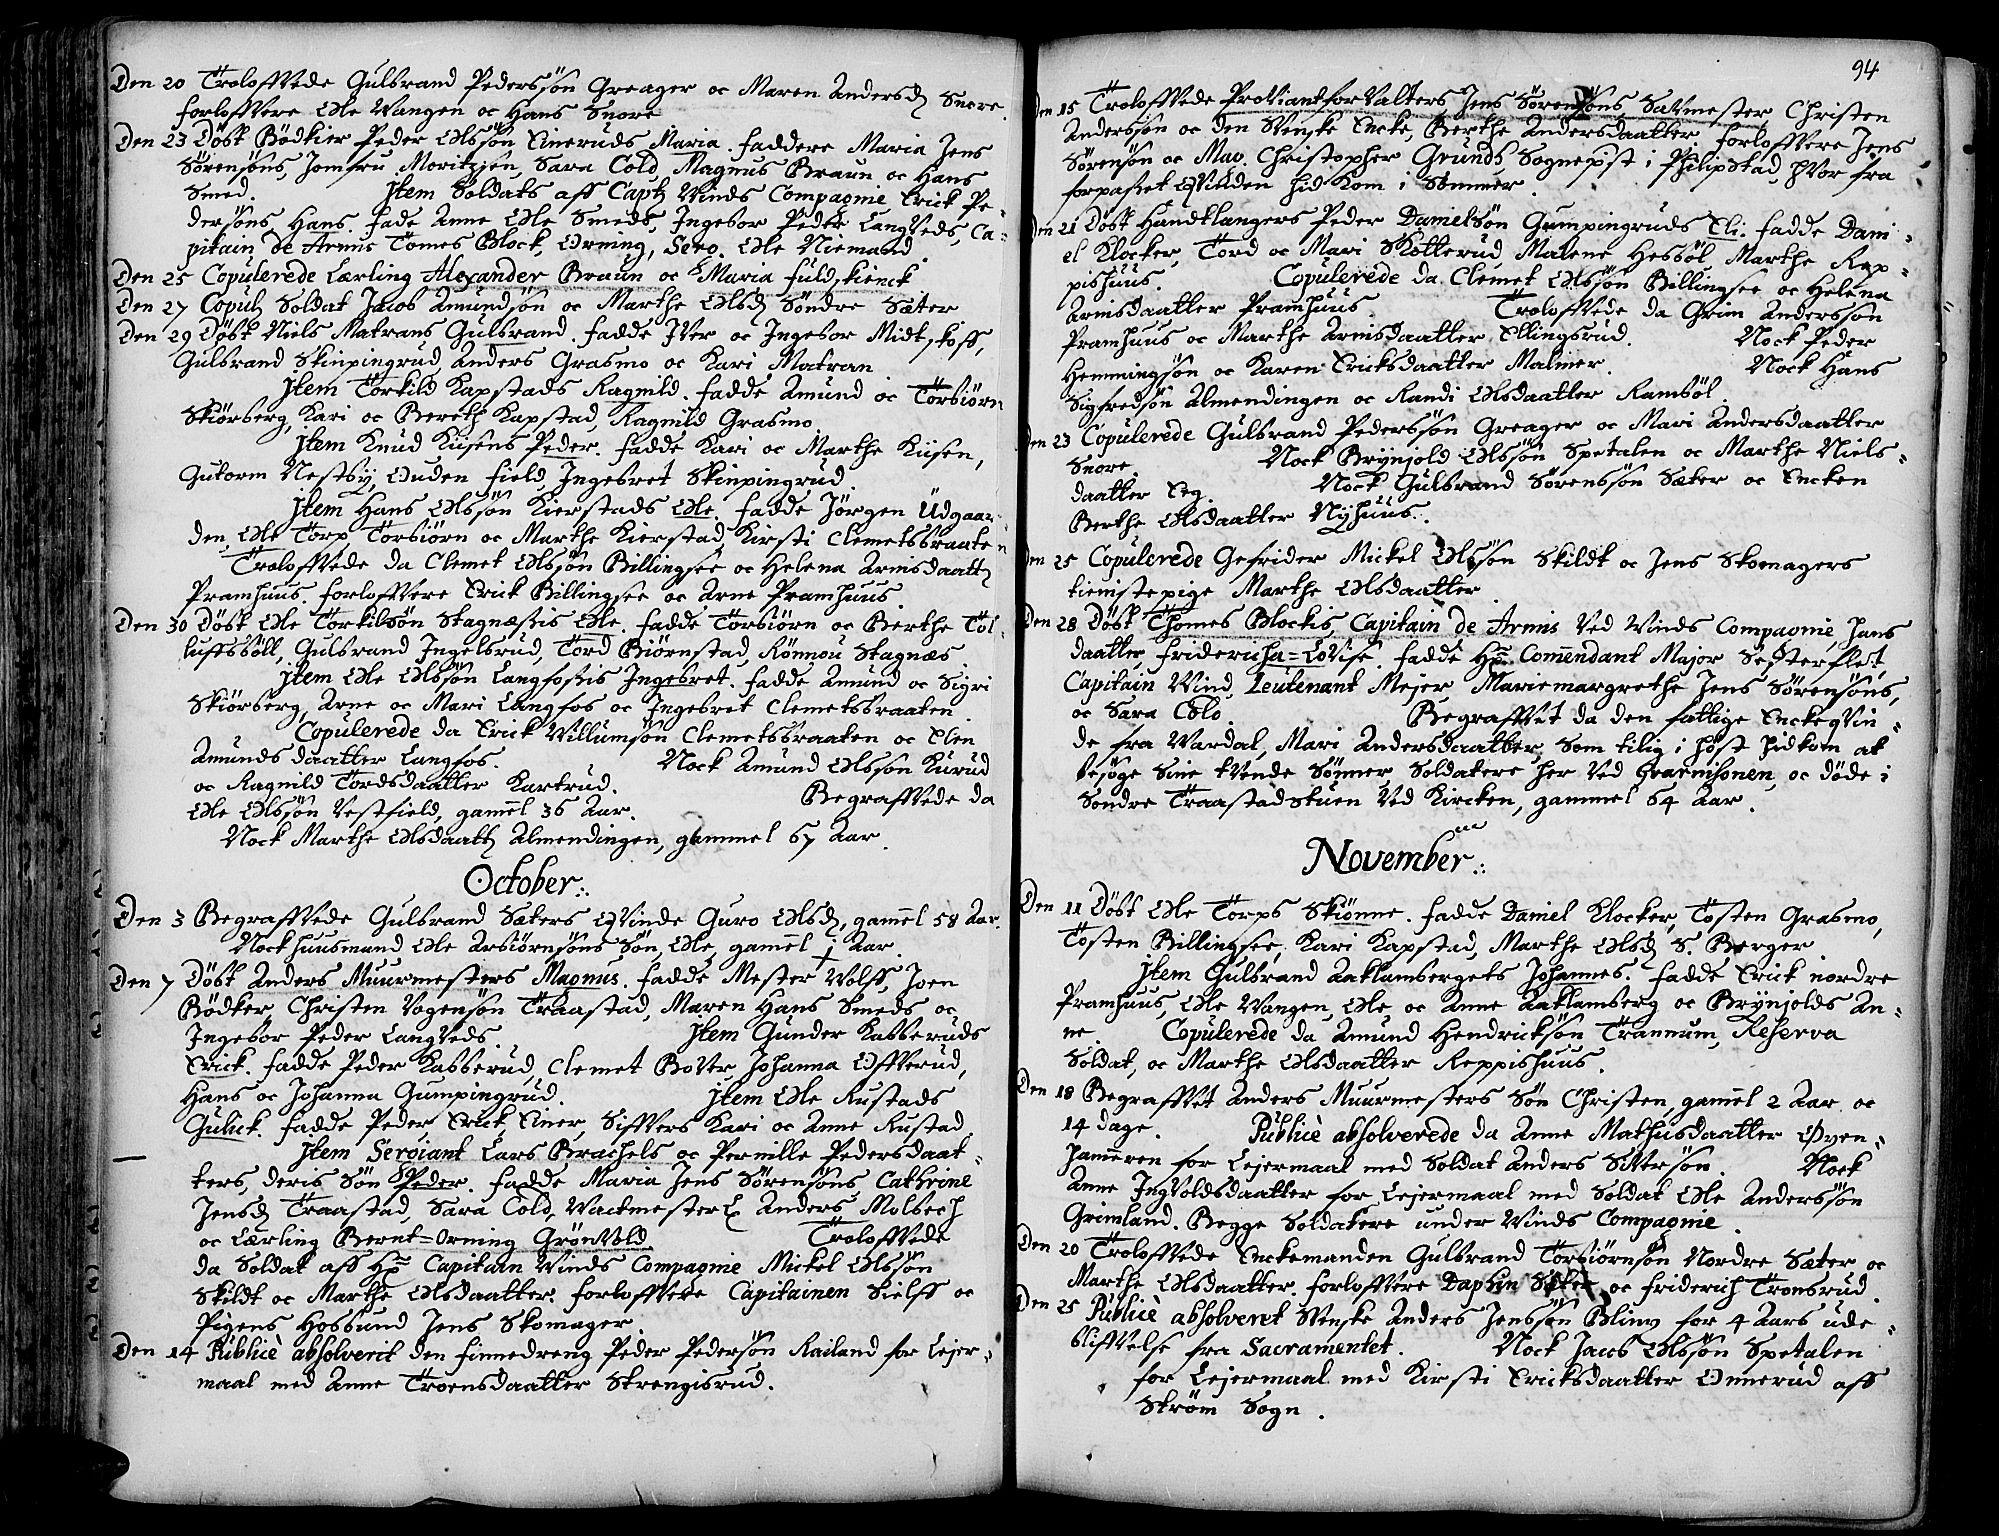 Den 20 Troloffvede Gulbrand Pedersøn Greager oc Maren Andersd. Snore.
forloffvere Ole Vangen oc Hans Snore
Den 23 Døbt Bødkier Peder Olssøn Eineruds Maria. faddere Maria Jens
Sørensøns, Jomfru Moritzsen, Sara Cold, Magnus Braun oc Hans
Smed. Jtem Soldats aff Capt. Winds Compagnie Erick Pe-
dersøns, Hans. fadd. Anne Ole Smeds, Ingebor Peder Langveds, Ca-
pitain de Armis Tomes Block, Orning, Serg. Ole Niemand.
Den 25 Copulerede Lærling Alexander Braun oc Maria fuldskienck
Den 27 Copul. Soldat Jacob Amundsøn oc Marthe Olsd. Søndre Sæter
Den 29 Døbt Niels Matrans Gulbrand. fadde Iver oc Ingebor Midtskoff,
Gulbrand Skinpingrud, Anders Grasmo oc Kari Matran
Jtem Torkild Kapstads Ragnild. fadde Amund oc Torbiørn
Skiørberg, Kari oc Bereth Kapstad, Ragnild Grasmo
Jtem Knud Kiisens Peder. fadde Kari oc Marthe Kiisen,
Gutorm Nestby, Ouden field, Ingebret Skinpingrud.
Jtem Hans Olssøn Kierstads Ole. fadde Jørgen Udgaar-
den, Ole Torp, Torbiørn oc Marthe Kierstad, Kirsti Clemetsbraaten
Troloffvede da Clemet Olssøn Billingsee oc Helena Armsdaatt.
Pramhuus. forloffvere Erick Billingsee oc Arne Pramhuus.
Den 30 Døbt Ole Torkilsøn Stagnæssis Ole. fadde Torbiørn oc Berthe Tol-
luffsbøll, Gulbrand Ingelsrud, Tord Biørnstad, Rønnou Stagnæs
Jtem Ole Olssøn Langfossis Ingebret. fadde Amund oc Sigri
Skiørberg, Arne oc Mari Langfos oc Ingebret Clemetsbraaten
Copulerede da Erick Villumsøn Clemetsbraaten oc Elen
Amundsdaatter Langfos. Nock Amund Olssøn Kurud
oc Ragnild Tordsdaatter Kartrud. Begraffvede da
Ole Olssøn Vestfield, gamel 36 Aar.
Nock Marthe Olsdaatt. Almendingen, gammel 67 Aar.
October.
Den 3 Begraffvede Gulbrand Sæters Qvinde Guro Olsd, gamel 58 Aar.
Nock huusmand Ole Arbiørnsøns Søn, Ole, gamel 1 Aar
Den 7 Døbt Anders Muurmesters Magnus. fadde Mester Wolff, Joen
Bødker, Christen Vogensøn Traastad, Maren Hans Smeds oc
Ingebor Peder Langveds. Jtem Gunder Kabberuds
Erick. fadde Peder Kabberud, Clemet Rotter, Johanna Offverud,
Hans oc Johanna Gumpingrud. Jtem Ole Rustads
Gulick. fadde Peder, Erick, Einer, Siffvers Kari oc Anne Rustad
Jtem Sergiant Lars Brachels oc Pernille Pedersdaat-
ters, deris Søn Peder. fadde Maria Jens Sørensøns Cathrine
Jensd. Traastad, Sara Cold, Wactmester Anders Molbech
oc Lærling Bernt=Orning Grønvold Troloffvede
da Soldat aff Hr. Capitain Winds Compagnie Mickel Olssøn
Skildt oc Marthe Olsdaatter. forloffvere Capitainen Sielff oc
Pigens Hosbund Jens Skomager
Den 14 Publicè absolverit den finnedreng Peder Pedersøn Railand for Lejer-
maal med Anne Troensdaatter Strengisrud.
94
Den 15 Troloffvede Proviantforvalters Jens Sørensøns Savmester Christen
Anderssøn oc den Svenske Encke, Berthe Andersdaatter. forloffvere Jens
Sørensøn oc Mag. Christopher Grunds Sognepst i Philipstad, hvor fra
forpasset Qvinden hid kom i Sommer.
Den 21 Døbt Handtlangers Peder Danielsøn Gumpingruds Eli. fadde Dani-
el Klocker, Tord oc Mari Skotterud, Malene Hesbøl, Marthe Rep-
pishuus. Copulerede da Clemet Olssøn Billingsee oc Helena
Armsdaatter Pramhuus. Troloffvede da Grim Anderssøn
Pramhuus oc Marthe Armsdaatter Ellingsrud. Nock Peder
Hemmingsøn oc Karen Ericksdaatter Malmer. Nock Hans
Sigfredsøn Almendingen oc Randi Olsdaatter Rambøl.
Den 23 Copulerede Gulbrand Pederssøn Greager oc Mari Andersdaatter
Snore. Nock Brynjold Olssøn Spetalen oc Marthe Niels-
daatter Eeg. Nock Gulbrand Sørenssøn Sæter oc Encken
Berthe Olsdaatter Nyhuus.
Den 25 Copulerede Gefrider Mickel Olssøn Skildt oc Jens Skomagers
tienistepige Marthe Olsdaatter
Den 28 Døbt Thomes Blockis, Capitain de Armis ved Winds Compagnie, hans
daatter, fridericha=Lovise. fadde Hr. Comendant Major Sesterflet,
Capitain Wind, Leutenant Mejer, Mariemargrethe Jens Sørensøns,
oc Sara Cold. Begraffvet da den fattige Enckeqvin-
de fra Vardal, Mari Andersdaatter, som tilig i høst hidkom at
besøge sine tvende Sønner, Soldatere her ved Guarnisonen, oc døde i
Søndre Traastadstuen ved Kircken, gammel 64 Aar.
November.
Den 11 Døbt Ole Torps Skiønne. fadde Daniel Klocker, Tosten Grasmo,
Tosten Billingsee, Kari Kapstad, Marthe Olsd. S. Berger
Jtem Gulbrand Aaklambergets Johannes. fadde Erick nordre
Pramhuus, Ole Vangen, Ole, oc Anne Aaklamberg oc Brynjolds An-
ne. Copulerede da Amund Hendricksøn Trannum, Reserva
Soldat, oc Marthe Olsdaatter Reppishuus.
Den 18 Begraffvet Anders Muurmesters Søn Christen, gamel 2 Aar oc
14 dage. Publicè absolverede da Anne Mathusdaatter Øven-
hameren for Lejermaal med Soldat Anders Sivrsøn. Nock
Anne Ingvoldsdaatter for Lejermaal med Soldat Ole Anderssøn
Grimland. Begge Soldatere under Winds Compagnie.
Den 20 Troloffvede Enckemanden Gulbrand Torbiørnsøn Nordre Sæter oc
Marthe Olsdaatter. forloffvere Daphin Sæter oc friderich Tronsrud.
Den 25 Publicè absolveret Svenske Anders Jenssøn Blinv for 4 Aars ude-
bliffvelse fra Sacramentet. Nock Jacob Olssøn Spetalen
for Lejermaal med Kirsti Ericksdaatter Onnerud aff
Strøm Sogn.